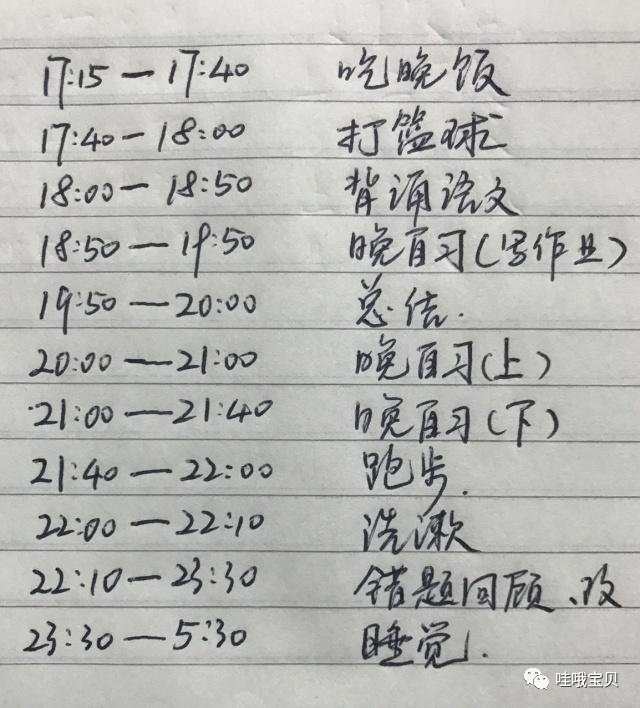 17:15 — 17:40 吃晚饭
17:40 — 18:00 打篮球
18:00 — 18:50 背诵语文
18:50 — 19:50 晚自习(写作业)
19:50 — 20:00 总结.
20:00 — 21:00 晚自习(上)
21:00 — 21:40 晚自习(下)
21:40 — 22:00 跑步.
22:00 — 22:10 洗漱
22:10 — 23:30 错题回顾、改
23:30 — 5:30 睡觉.
哇哦宝贝